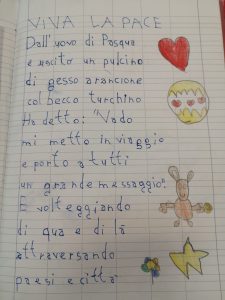 VIVA LA PACE
Dall'uovo di Pasqua
è uscito un pulcino
di gesso arancione
col becco turchino
Ha detto: "Vado
mi metto in viaggio
e porto a tutti
un grande messaggio".
E volteggiando
di qua e di là
attraversando
paesi e città